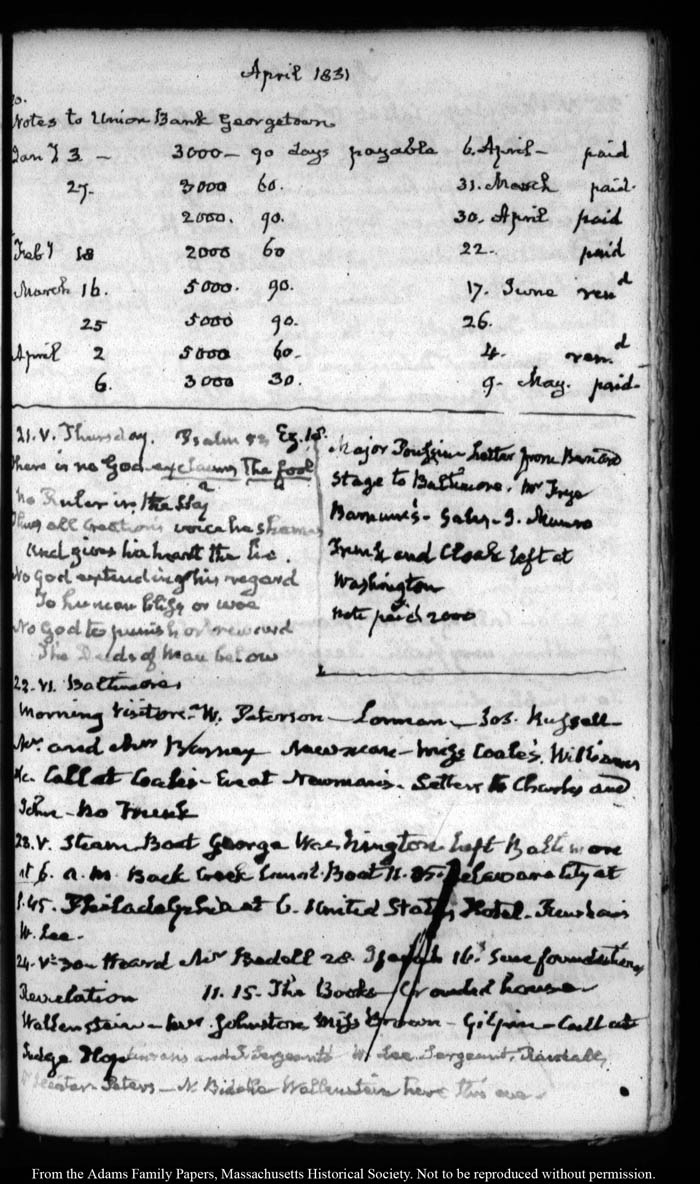 April 1831
20.
Notes to Union Bank Georgetown
Jan'y 3. — 3000 — 90 days payable 6. April — paid
27. 3000 60. 31. March paid.
2000. 90. 30. April paid
Feby 18 2000 60 22. paid
March 16. 5000. 90. 17. June ren.d
25 5000 90. 26.
April 2 5000 60. 4. ren.d
6. 3000 30. 9. May. paid.
21. V. Thursday. Psalm 53 Ez. 18.
There is no God exclaims The fool
No Ruler in the Sky
Thus all Creation's voice he shames
And gives his heart the lie.
No God extending his regard
To human bliss or woe
No God to punish or reward
The Deeds of Man below
Major Poussin Letter from Bernard
Stage to Baltimore. Mr Frye
Barnum's — Gales — I. Munro
Trunk and Cloak left at
Washington
Note paid 2000
22. VI. Baltimore
Morning Visitors — W. Paterson — Lorman — Jos. Russell —
Mr. and Mrs Barney Newman — Miss Coale's. Williams
&c. Call at Coale's — Eve at Newman's. Letters to Charles and
John — No Trunk
23. V. Steam Boat George Washington. Left Baltimore
at 6. a.m. Back Creek Canal Boat 11. Delaware City at
1.45. Philadelphia at 6. United States Hotel.
W. Lee.
24. V:30 Heard Mr Bedell 28. Isaiah 16. Sure foundation,
Revelation 11. 15. The Books — Crowded house
Wallenstein — Mrs Johnston Miss Brown — Gilpin — Call at
Judge Hopkinson's and Sergeant's W. Lee Sergeant, Randall,
Peters — N. Biddle Wallenstein here this eve.
From the Adams Family Papers, Massachusetts Historical Society. Not to be reproduced without permission.